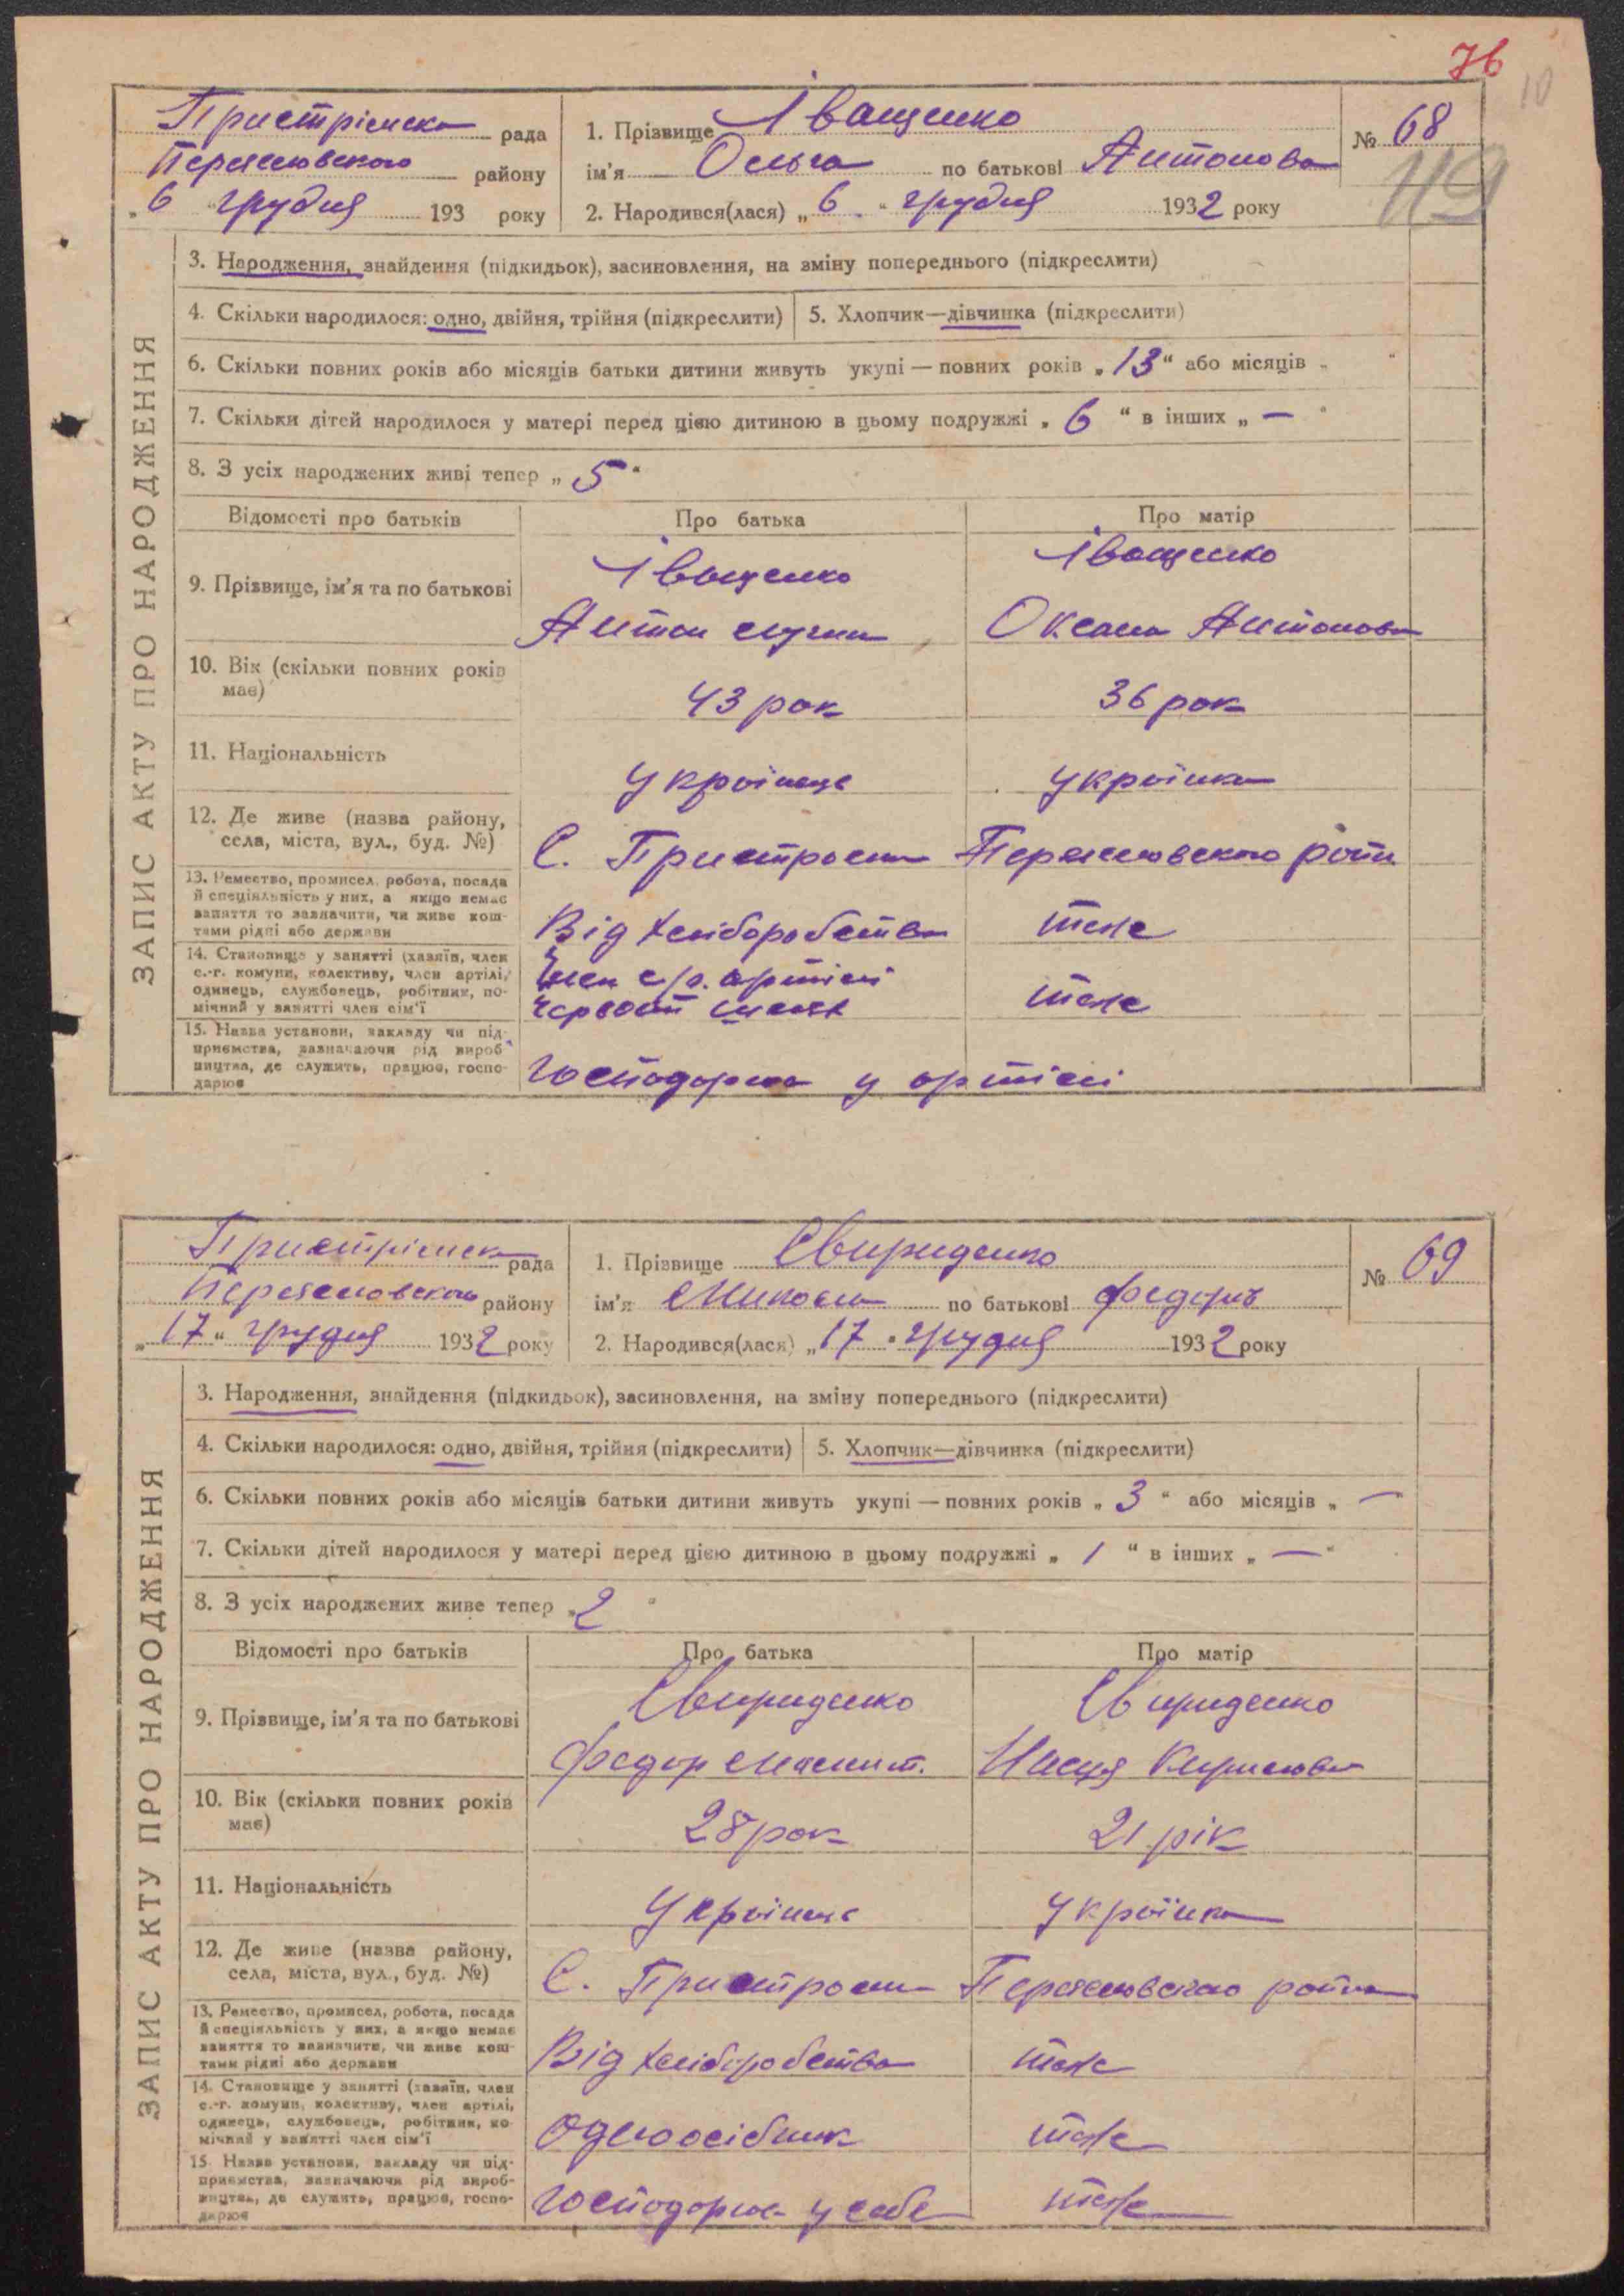 76
10
Пристрімська рада
Переяславського району
„6" грудня 193 року
1. Прізвище Іващенко
ім'я Ольга по батькові Антонова
2. Народився(лася) „6" грудня 1932 року
№ 68
49
ЗАПИС АКТУ ПРО НАРОДЖЕННЯ
3. Народження, знайдення (підкидьок), засиновлення, на зміну попереднього (підкреслити)
4. Скільки народилося: одно, двійня, трійня (підкреслити)
5. Хлопчик—дівчинка (підкреслити)
6. Скільки повних років або місяців батьки дитини живуть укупі — повних років „13" або місяців „ "
7. Скільки дітей народилося у матері перед цією дитиною в цьому подружжі „6" в інших „—"
8. З усіх народжених живі тепер „5"
Відомості про батьків Про батька Про матір
9. Прізвище, ім'я та по батькові
Іващенко
Антон
Іващенко
Оксана Антонова
10. Вік (скільки повних років
має)
43 рок
36 рок
11. Національність
українець
українка
12. Де живе (назва району,
села, міста, вул., буд. №)
С. Пристроми Переяславського району
13. Ремество, промисел, робота, посада
й спеціяльність у них, а якщо немає
заняття то зазначити, чи живе кош-
тами рідні або держави
Від хліборобства
теже
14. Становище у занятті (хазяїн, член
с.-г. комуни, колективу, член артілі,
одинець, службовець, робітник, по-
мічний у занятті член сім'ї
Член с/г. артілі
Червоний шлях
теже
15. Назва установи, закладу чи під-
приємства, зазначаючи рід вироб-
ництва, де служить, працює, госпо-
дарює
Господарює у артілі
Пристрімська рада
Переяславського району
„17" грудня 1932 року
1. Прізвище Свириденко
ім'я Микола по батькові Федорів
2. Народився(лася) „17" грудня 1932 року
№ 69
ЗАПИС АКТУ ПРО НАРОДЖЕННЯ
3. Народження, знайдення (підкидьок), засиновлення, на зміну попереднього (підкреслити)
4. Скільки народилося: одно, двійня, трійня (підкреслити)
5. Хлопчик—дівчинка (підкреслити)
6. Скільки повних років або місяців батьки дитини живуть укупі — повних років „3" або місяців „—"
7. Скільки дітей народилося у матері перед цією дитиною в цьому подружжі „1" в інших „—"
8. З усіх народжених живе тепер „2"
Відомості про батьків Про батька Про матір
9. Прізвище, ім'я та по батькові
Свириденко
Федор
Свириденко
Насця Кирилова
10. Вік (скільки повних років
має)
28 рок
21 рік
11. Національність
українець
українка
12. Де живе (назва району,
села, міста, вул., буд. №)
С. Пристроми Переяславського района
13. Ремество, промисел, робота, посада
й спеціяльність у них, а якщо немає
заняття то зазначити, чи живе кош-
тами рідні або держави
Від хліборобства
теже
14. Становище у занятті (хазяїн, член
с.-г. комуни, колективу, член артілі,
одинець, службовець, робітник, по-
мічний у занятті член сім'ї
Одноосібник
теже
15. Назва установи, закладу чи під-
приємства, зазначаючи рід вироб-
ництва, де служить, працює, госпо-
дарює
Господарює у себе
теже